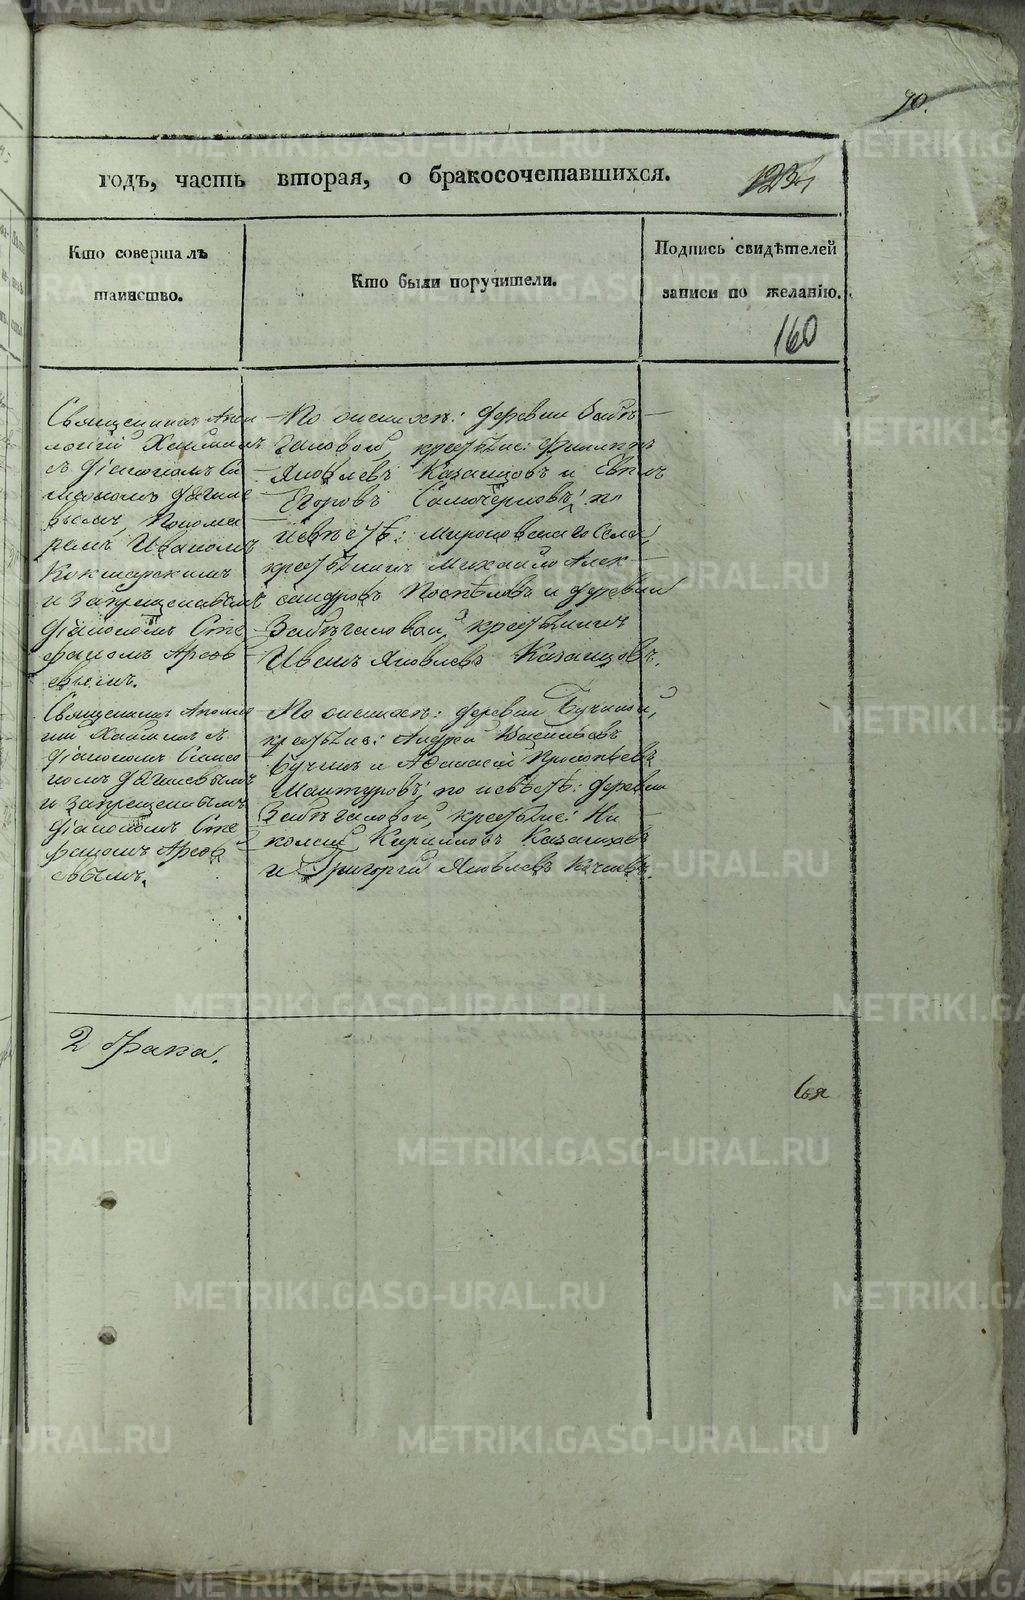 90.
годъ, часть вторая, о бракосочетавшихся.
Кто совершалъ
таинство.
Кто были поручители.
Подпись свидѣтелей
записи по желанію.
160
Священникъ Апол
лонгій
съ Діакономъ Си
меономъ
вымъ, Понома
ремъ Иваномъ
Кокшарскимъ
и запрещеннымъ
Діакономъ Сте
фаномъ Арефь
евымъ.
По женихѣ: деревни
крестьяне: Филиппъ
Яковлевъ Казанцовъ и
Егоровъ Самочерновъ; по
невѣстѣ: Мироновскаго Села,
крестьянинъ Михайло Алек
сандровъ Поспѣловъ и деревни
Забѣгаловой, крестьянинъ
Иванъ Яковлевъ Казанцовъ.
Священникъ Аполло
съ
Діакономъ Симео
номъ
и запрещеннымъ
Діакономъ Сте
фаномъ Арефь
евымъ.
По женихѣ: деревни Бучиной,
крестьяне: Андрей Васильевъ
Бучинъ и Афанасій Прокопьевъ
Мантуровъ; по невѣстѣ: деревни
Забѣгаловой, крестьяне: Ни
колай Кирилловъ Казанцовъ
и Григорій Яковлевъ
2 брака.
METRIKI.GASO-URAL.RU